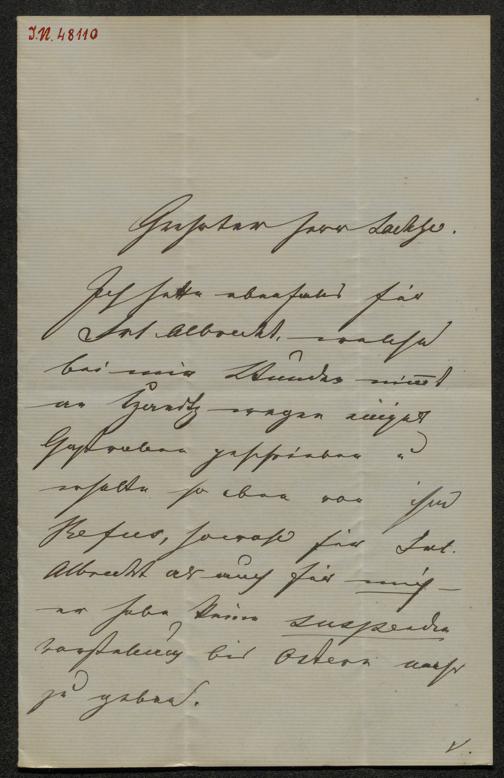 I.N. 48110
Geehrter Herr Lachse.
Ich hatte ebenfalls für
Frl. Albrecht, welche
bei mir Stunden nimmt
an wegen einiger
Gastrollen geschrieben u
erhalte so eben von ihm
Refus, sowohl für Frl.
Albrecht als auch für mich –
er habe keine suspendu
vorstellung bis Ostern mehr
zu geben.
V.